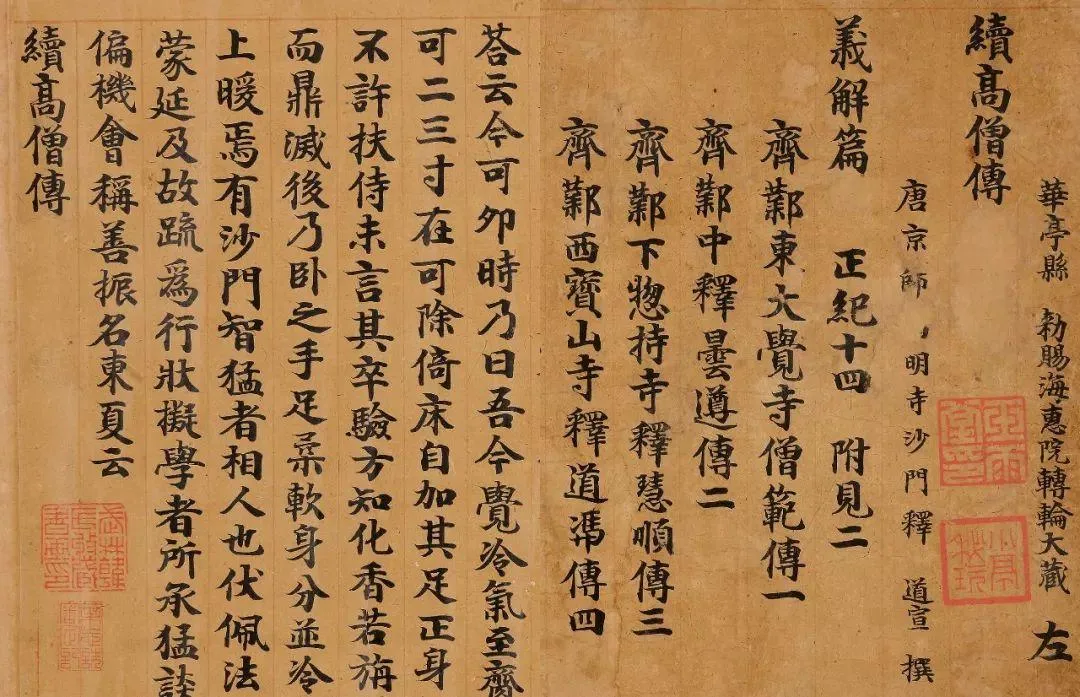 華亭縣 勑賜海惠院轉輪大藏 左
續高僧傳
唐京師 明寺沙門釋 道宣 撰
義解篇 正紀十四 附見二
齊鄴東大覺寺僧範傳一
齊鄴中釋曇遵傳二
齊鄴下惣持寺釋慧順傳三
齊鄴西寶山寺釋道馮傳四
荅云今可夘時乃曰吾今覺冷氣至齋
可二三寸在可除倚床自加其足正身
不許扶侍未言其卒驗方知化香若旃
而鼎滅後乃卧之手足柔軟身分並冷
上暖焉有沙門智猛者相人也伏佩法
蒙延及故䟽為行狀擬學者所承猛談
偏機會稱善振名東夏云
續高僧傳